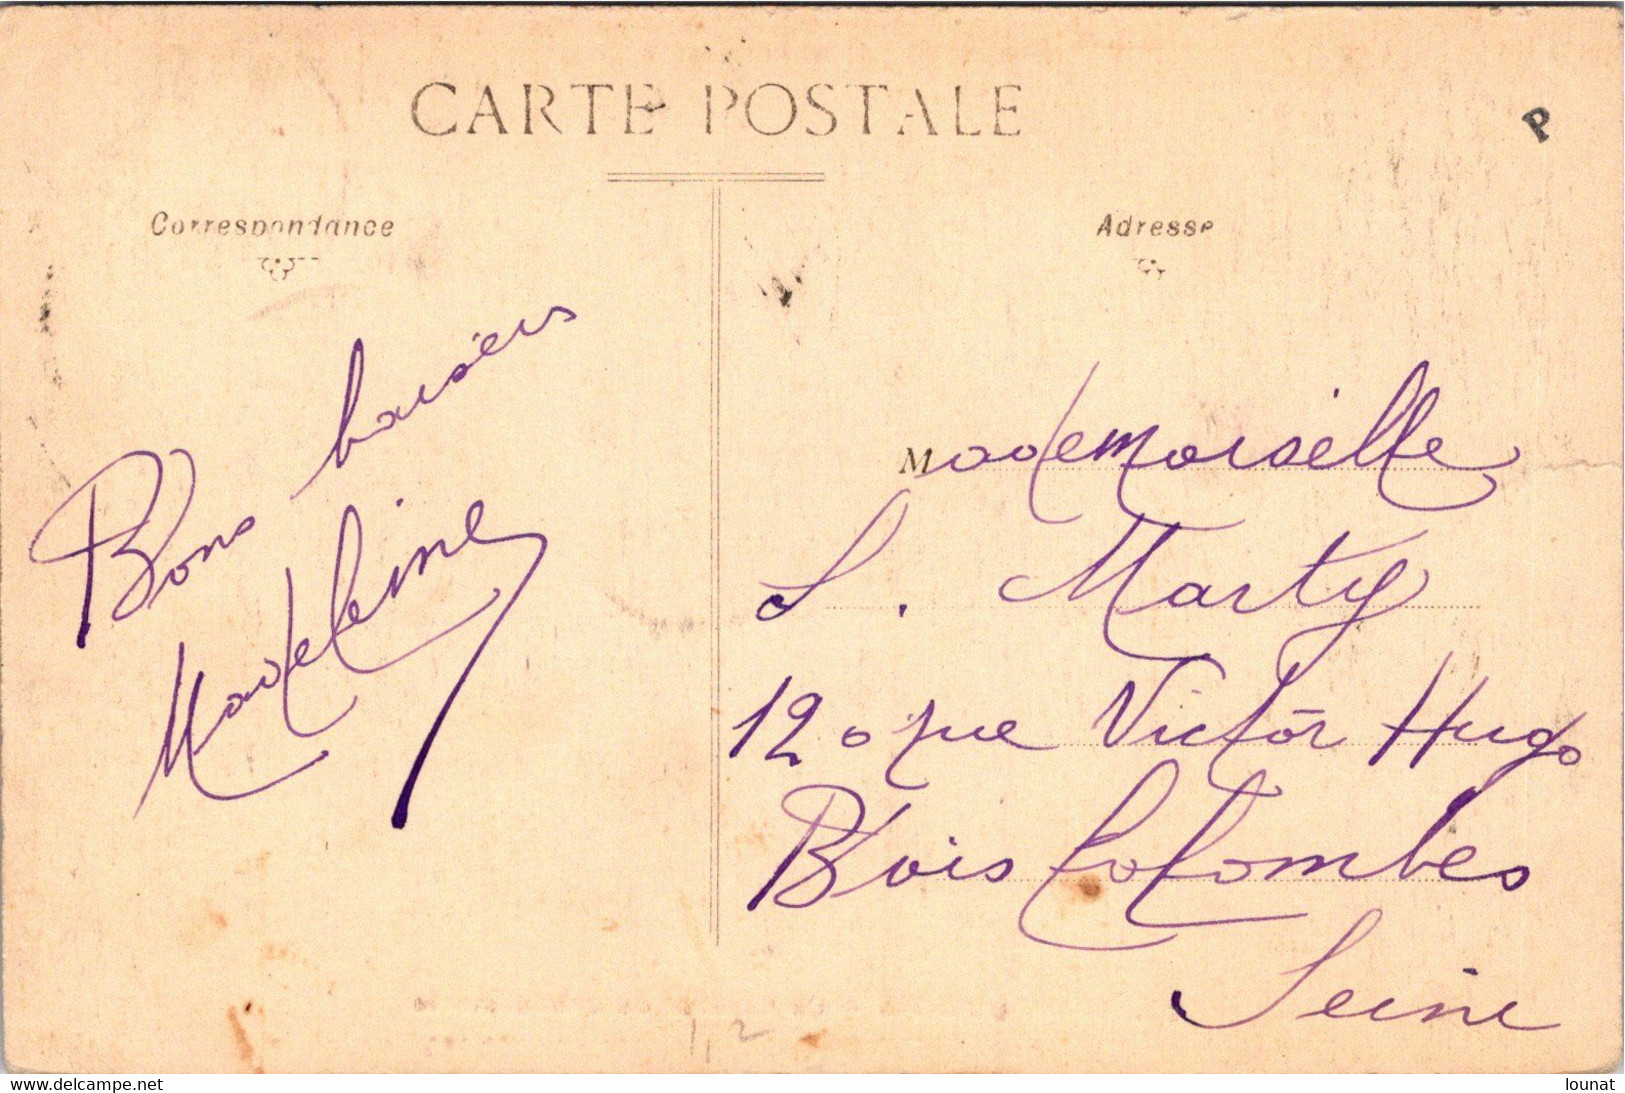 CARTE POSTALE
P
Correspondance
Adresse
Bons baisers
Madeleine
Mademoiselle
L. Marty
120 rue Victor Hugo
Bois Colombes
Seine
12
www.delcampe.net
lounat